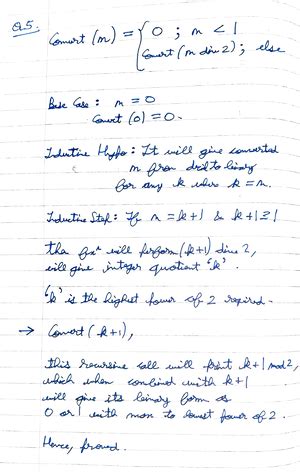 Q5.
Convert (n) = { 0 ; n < 1
Convert (n div 2) ; else
Base Case : n = 0
Convert (0) = 0.
Inductive Hypo : It will give converted
n from decl to binary
for any k where k = n.
Inductive Step : If n = k+1 & k+1 ≥ 1
the fxn will perform (k+1) div 2,
will give integer quotient 'k'.
'k' is the highest power of 2 required.
→ Convert (k+1),
this recursive call will print k+1 mod 2,
which when combined with k+1
will give its binary form as
0 or 1 with to lowest power of 2.
Hence, proved.